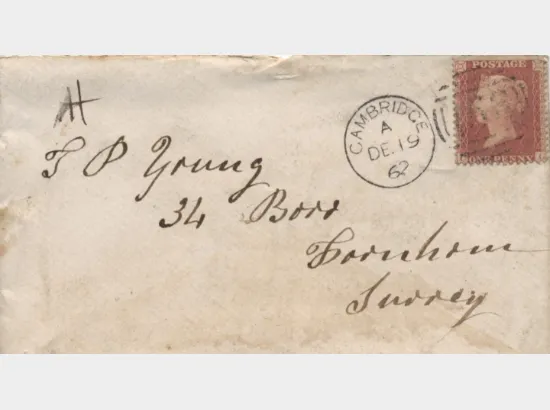 POSTAGE
H
CAMBRIDGE
A
DE 19
62
ONE PENNY
T P Young
34 Boro
Farnham
Surrey